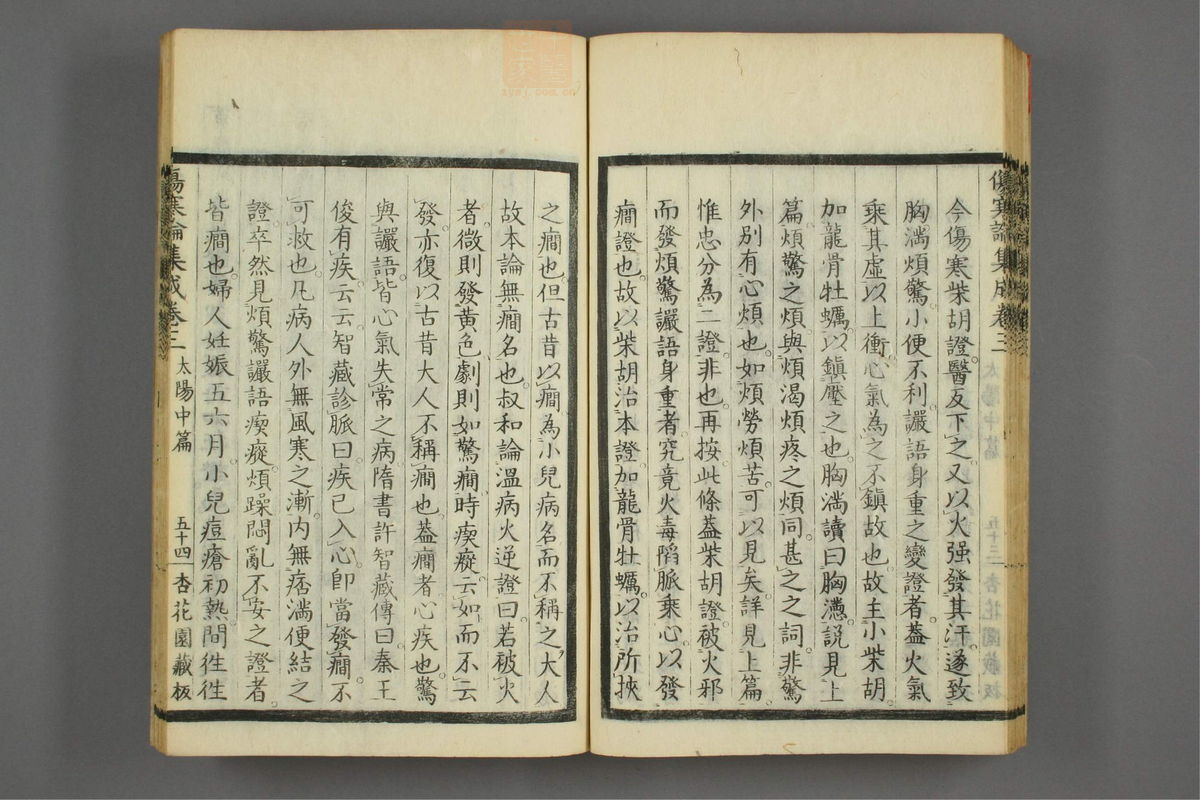 今傷寒柴胡證醫反下之又以火强發其汗遂致
胸滿煩驚小便不利讝語身重之變證者蓋火氣
乘其虛以上衝心氣為之不鎮故也故主小柴胡
加龍骨牡蠣以鎮壓之也胸滿讀曰胸懣說見上
篇煩驚之煩與煩渴煩疼之煩同甚之之詞非驚
外別有心煩也如煩勞煩苦可以見矣詳見上篇
惟忠分為二證非也再按此條蓋柴胡證被火邪
而發煩驚讝語身重者究竟火毒陷脈乘心以發
癎證也故以柴胡治本證加龍骨牡蠣以治所挾
傷寒論集成卷三
之癎也但古昔以癎為小兒病名而不稱之大人
故本論無癎名也叔和論溫病火逆證曰若被火
者微則發黃色劇則如驚癎時瘈瘲云如而不云
發亦復以古昔大人不稱癎也蓋癎者心疾也驚
與讝語皆心氣失常之病隋書許智藏傳曰秦王
俊有疾云云智藏診脈曰疾已入心卽當發癎不
可救也凡病人外無風寒之漸內無痞滿便結之
證卒然見煩驚讝語瘈瘲煩躁悶亂不安之證者
皆癎也婦人妊娠五六月小兒痘瘡初熱間徃徃
傷寒論集成卷三 太陽中篇 五十四 杏花園藏板